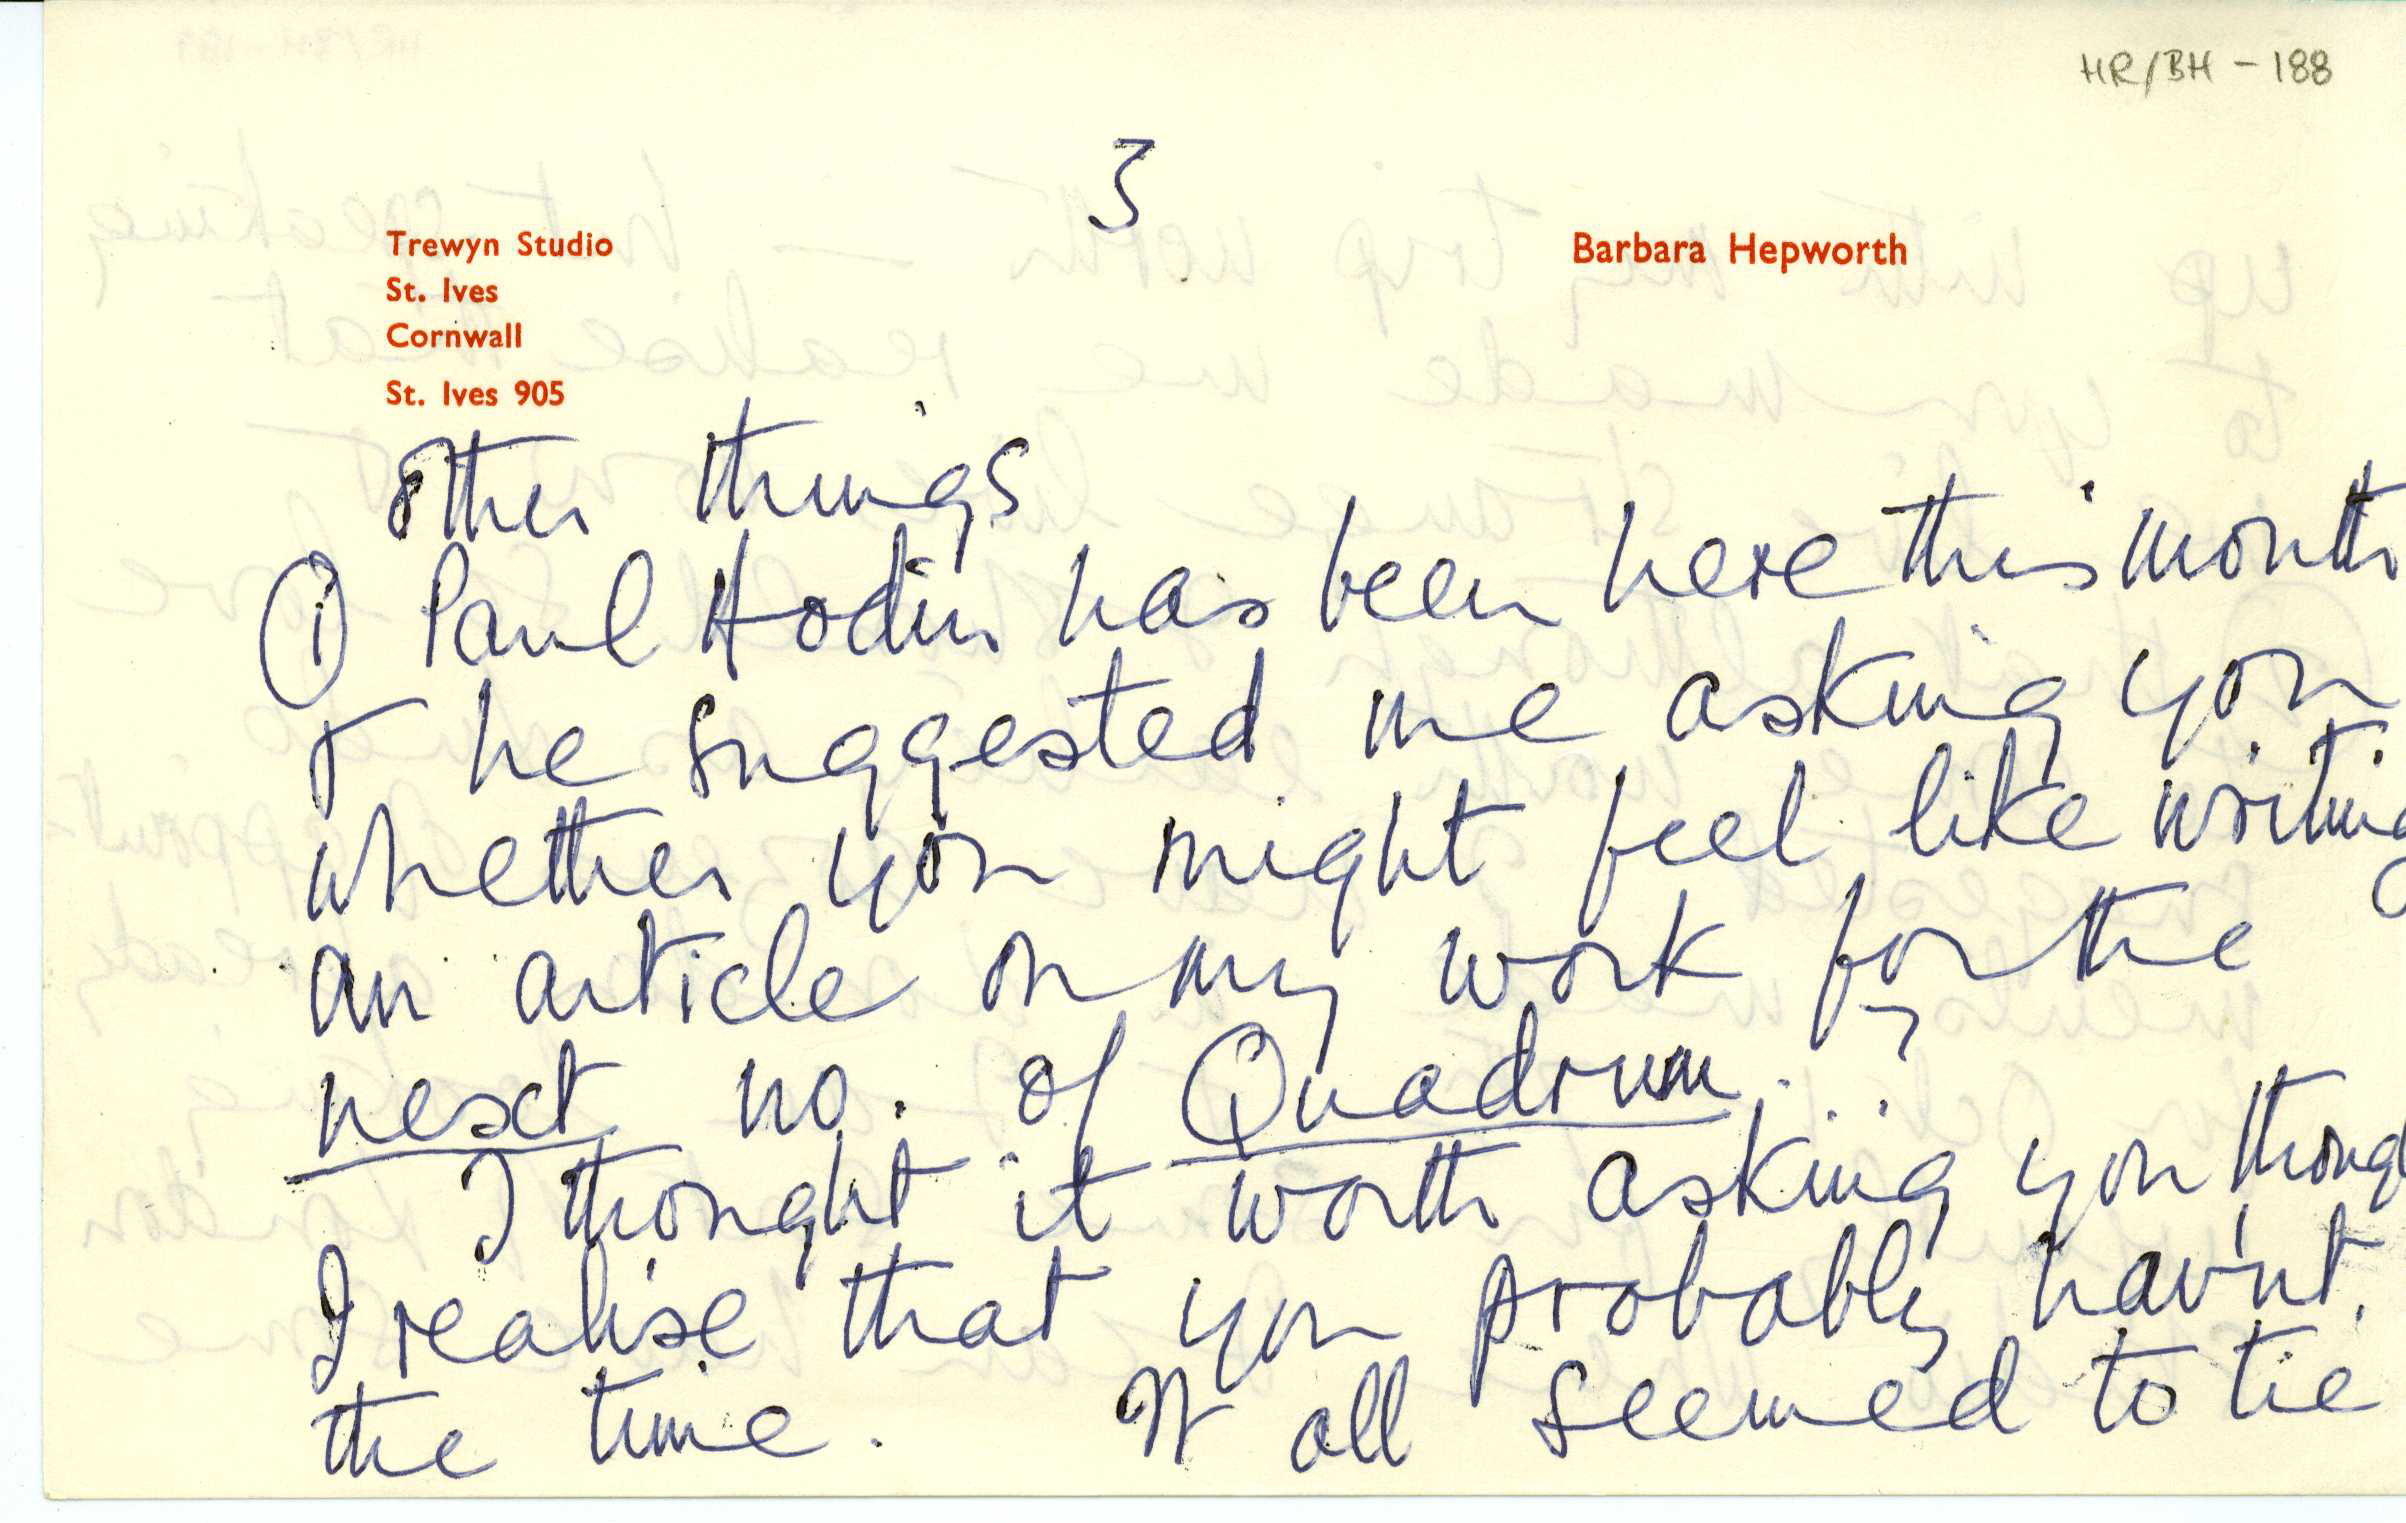 HR/BH - 188
3
Trewyn Studio
St. Ives
Cornwall
St. Ives 905
Barbara Hepworth
other things
① Paul Hodin has been here this month
& he suggested me asking you
whether you might feel like writing
an article on my work for the
next no. of Quadrum.
I thought it worth asking you though
I realise that you probably hav'nt
the time. It all seemed to tie